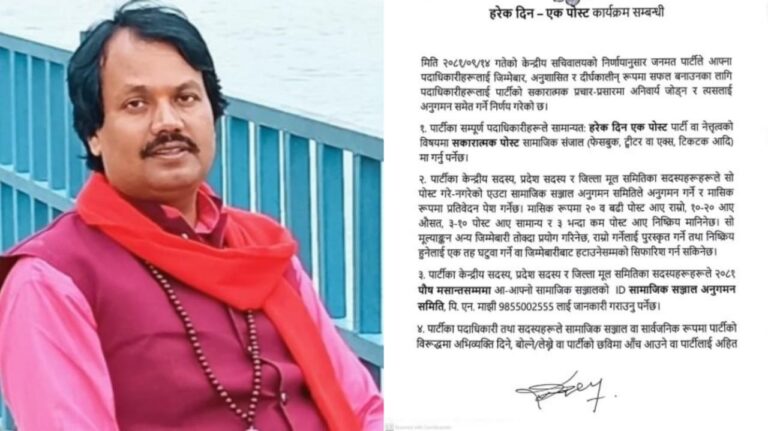 हरेक दिन – एक पोस्ट कार्यक्रम सम्बन्धी
मिति २०८१/०९/१४ गतेको केन्द्रीय सचिवालयको निर्णयानुसार जनमत पार्टीले आफ्ना
पदाधिकारीहरूलाई जिम्मेबार, अनुशासित र दीर्घकालीन् रूपमा सफल बनाउनका लागि
पदाधिकारीहरूलाई पार्टीको सकारात्मक प्रचार-प्रसारमा अनिवार्य जोड्न र त्यसलाई
अनुगमन समेत गर्ने निर्णय गरेको छ।
१. पार्टीका सम्पूर्ण पदाधिकारीहरूले सामान्यत: हरेक दिन एक पोस्ट पार्टी वा नेत्तृत्वको
विषयमा सकारात्मक पोस्ट सामाजिक संजाल (फेसबुक, ट्वीटर वा एक्स, टिकटक आदि)
मा गर्नु पर्नेछ।
२. पार्टीका केन्द्रीय सदस्य, प्रदेश सदस्य र जिल्ला मूल समितिका सदस्यहरूहरूले सो
पोस्ट गरे-नगरेको एउटा सामाजिक सञ्जाल अनुगमन समितिले अनुगमन गर्ने र मासिक
रूपमा प्रतिवेदन पेश गर्नेछ। मासिक रूपमा २० व बढी पोस्ट आए राम्रो, १०-२० आए
औसत, ३-१० पोस्ट आए सामान्य र ३ भन्दा कम पोस्ट आए निष्क्रिय मानिनेछ। सो
मूल्याङ्कन अन्य जिम्मेबारी तोक्दा प्रयोग गरिनेछ, राम्रो गर्नेलाई पुरस्कृत गर्ने तथा निष्क्रिय
हुनेलाई एक तह घटुवा गर्ने वा जिम्मेबारीबाट हटाउनेसम्मको सिफारिश गर्न सकिनेछ।
३. पार्टीका केन्द्रीय सदस्य, प्रदेश सदस्य र जिल्ला मूल समितिका सदस्यहरूहरूले २०८१
पौष मसान्तसम्ममा आ-आफ्नो सामाजिक सञ्जालको ID सामाजिक सञ्जाल अनुगमन
समिति, पि. एन. माझी 9855002555 लाई जानकारी गराउनु पर्नेछ।
४. पार्टीका पदाधिकारी तथा सदस्यहरूले सामाजिक सञ्जाल वा सार्वजनिक रूपमा पार्टीको
विरूद्धमा अभिव्यक्ति दिने, बोल्ने/लेख्ने वा पार्टीको छविमा आँच आउने वा पार्टीलाई अहित
Scanned with CamScanner